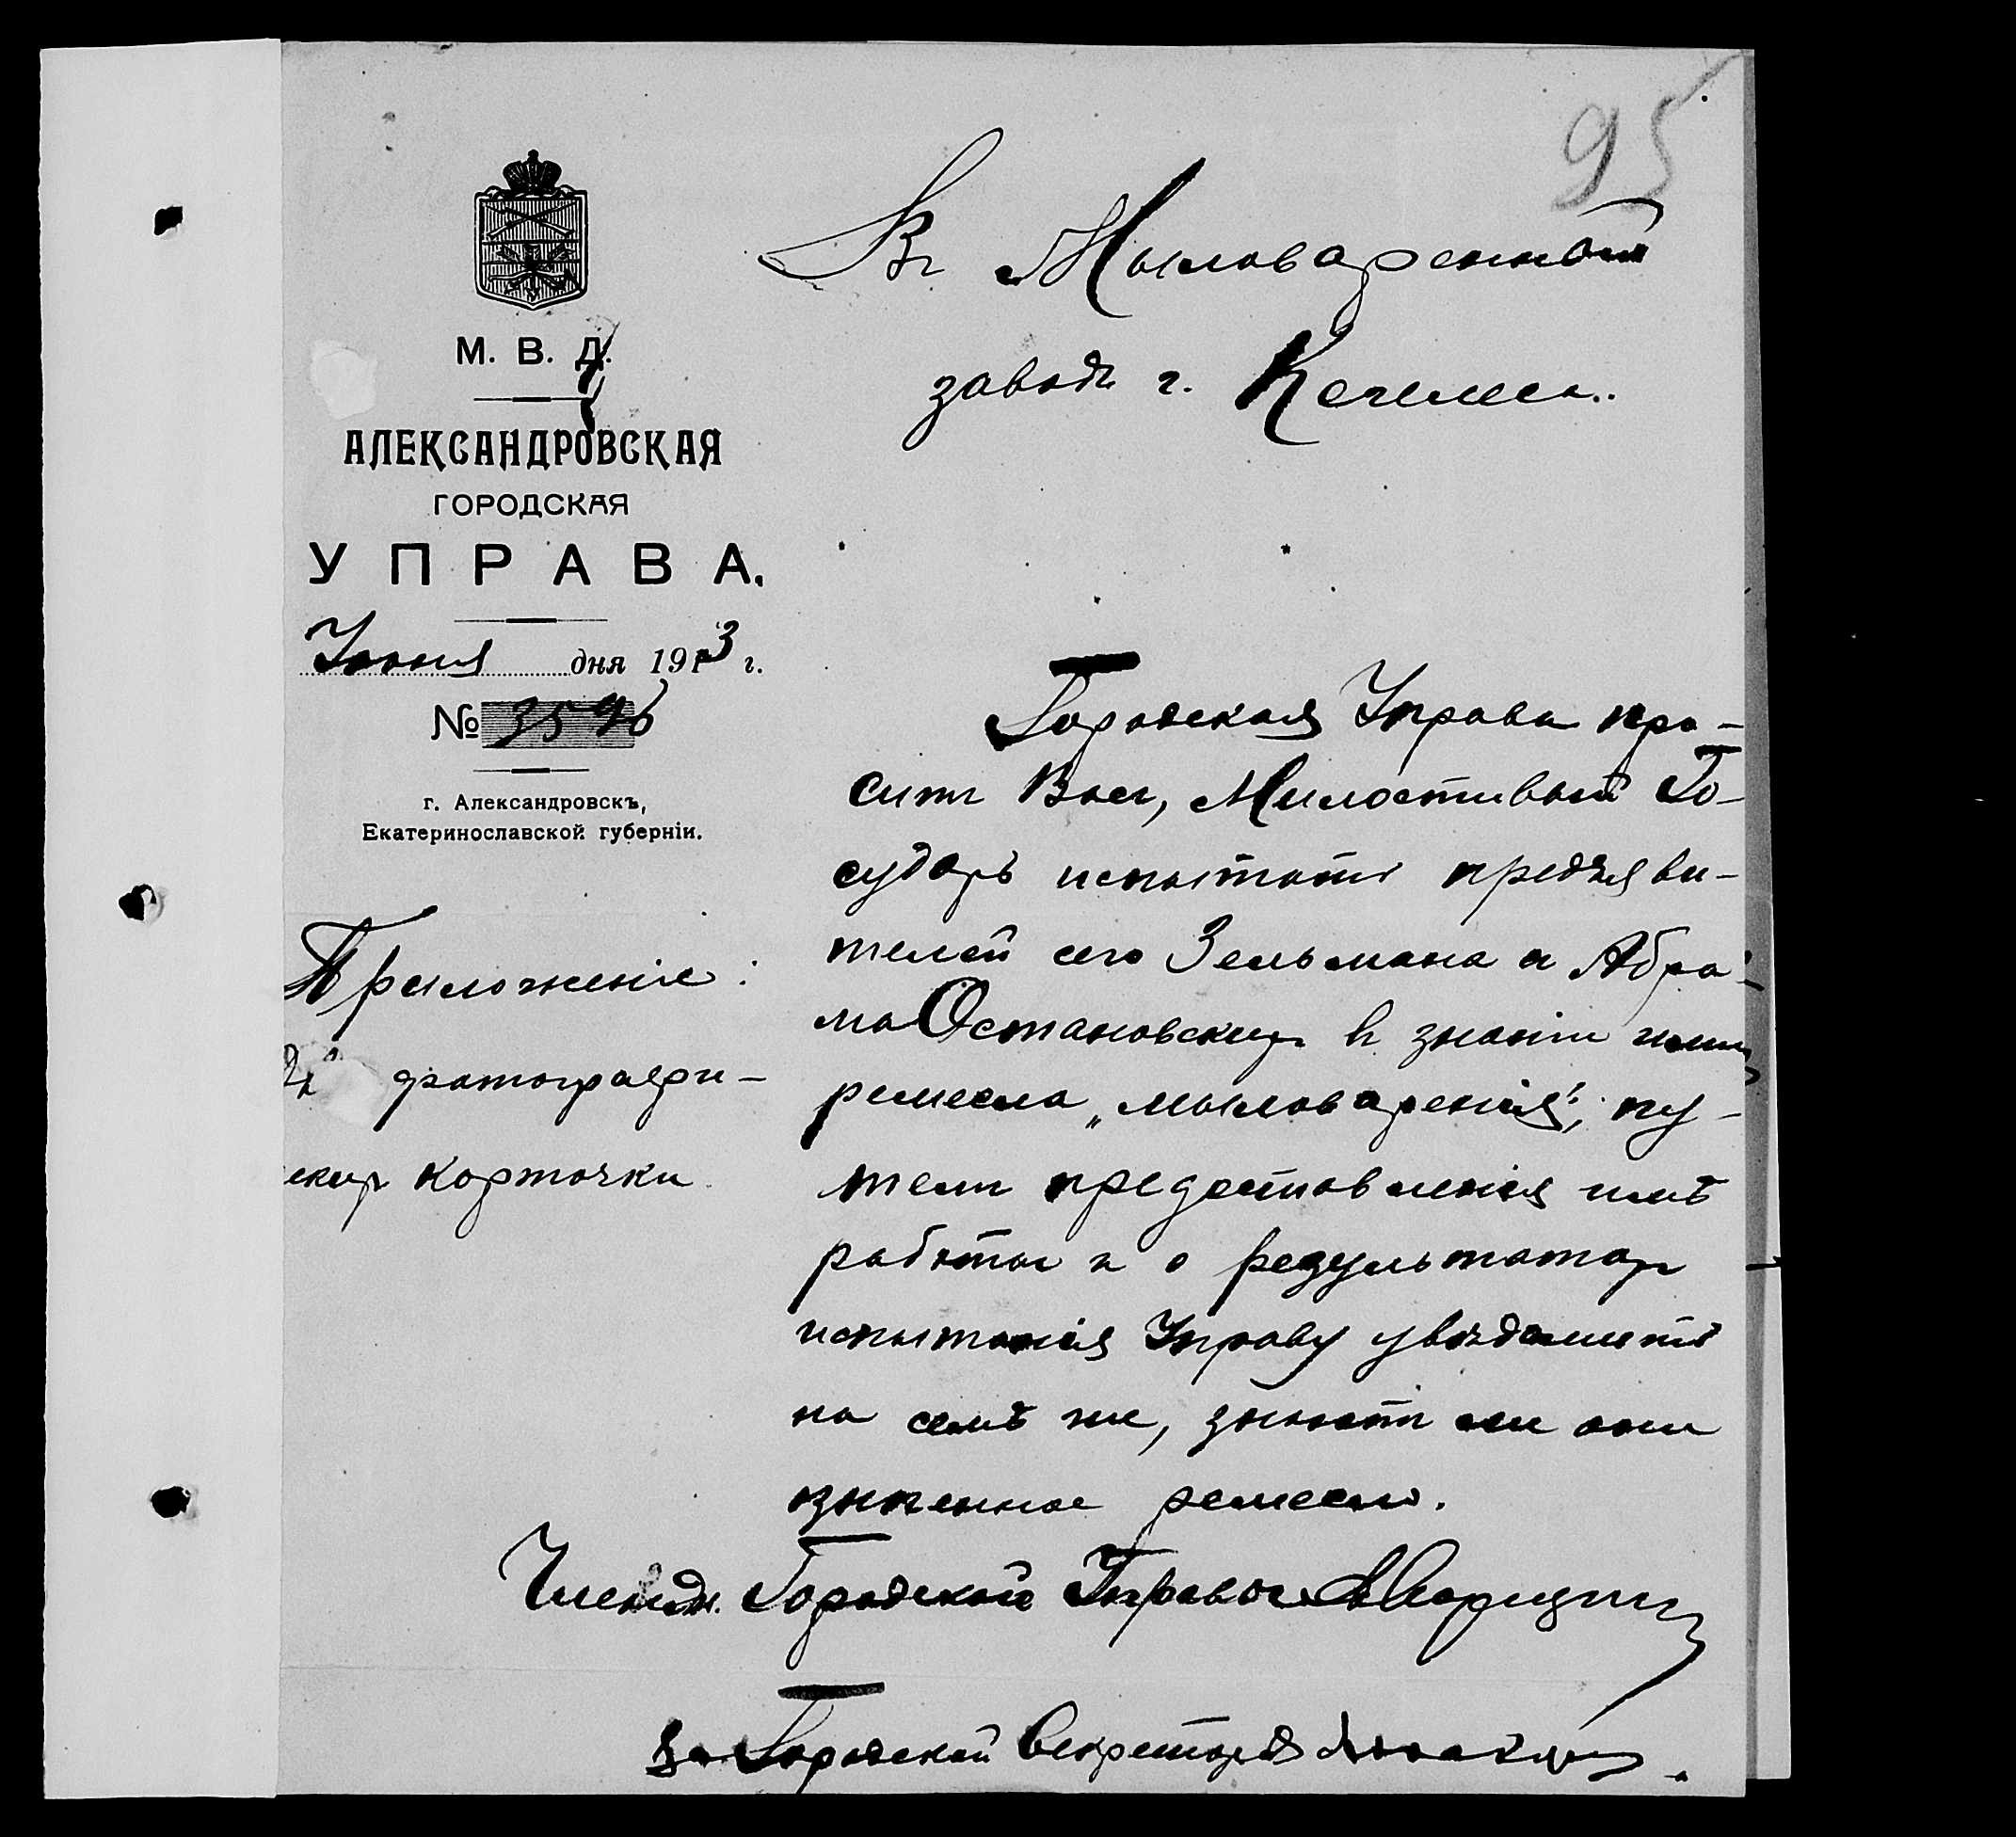 95
М. В. Д.
АЛЕКСАНДРОВСКАЯ
ГОРОДСКАЯ
УПРАВА.
Іюня дня 1913 г.
№ 3596
г. Александровскъ,
Екатеринославской губерніи.
Приложеніе:
2 фотографи-
скихъ карточки
Въ Мыловаренный
заводъ г.
Городская Управа про-
ситъ Васъ, Милостивый Го-
сударь испытать предъяви-
телей сего Зельмана и Абра-
ма Остановскихъ въ знаніи ими
ремесла „мыловаренія", пу-
темъ предоставленія имъ
работы и о результатахъ
испытанія Управу увѣдомить
на семъ же, знаютъ ли они
означенное ремесло.
Членъ Городской Управы
За Городской Секретаря